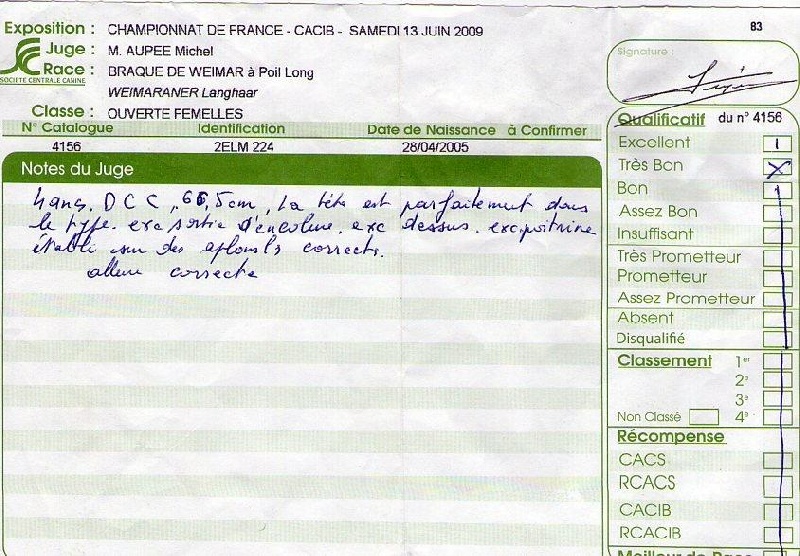 83
Exposition : CHAMPIONNAT DE FRANCE - CACIB - SAMEDI 13 JUIN 2009
Juge : M. AUPEE Michel
Race : BRAQUE DE WEIMAR à Poil Long
SOCIÉTÉ CENTRALE CANINE
WEIMARANER Langhaar
Classe : OUVERTE FEMELLES
N° Catalogue Identification Date de Naissance à Confirmer
4156 2ELM 224 28/04/2005
Notes du Juge
4 ans. DCC, 66,5cm, La tête est parfaitement dans
le type. exc sortie d'encolure. exc dessus. exc poitrine
établi sur des aplombs corrects.
allure correcte
Signature :
Qualificatif du n° 4156
Excellent
Très Bon X
Bon
Assez Bon
Insuffisant
Très Prometteur
Prometteur
Assez Prometteur
Absent
Disqualifié
Classement 1er
2e
3e
Non Classé 4e
Récompense
CACS
RCACS
CACIB
RCACIB
Meilleur de Race